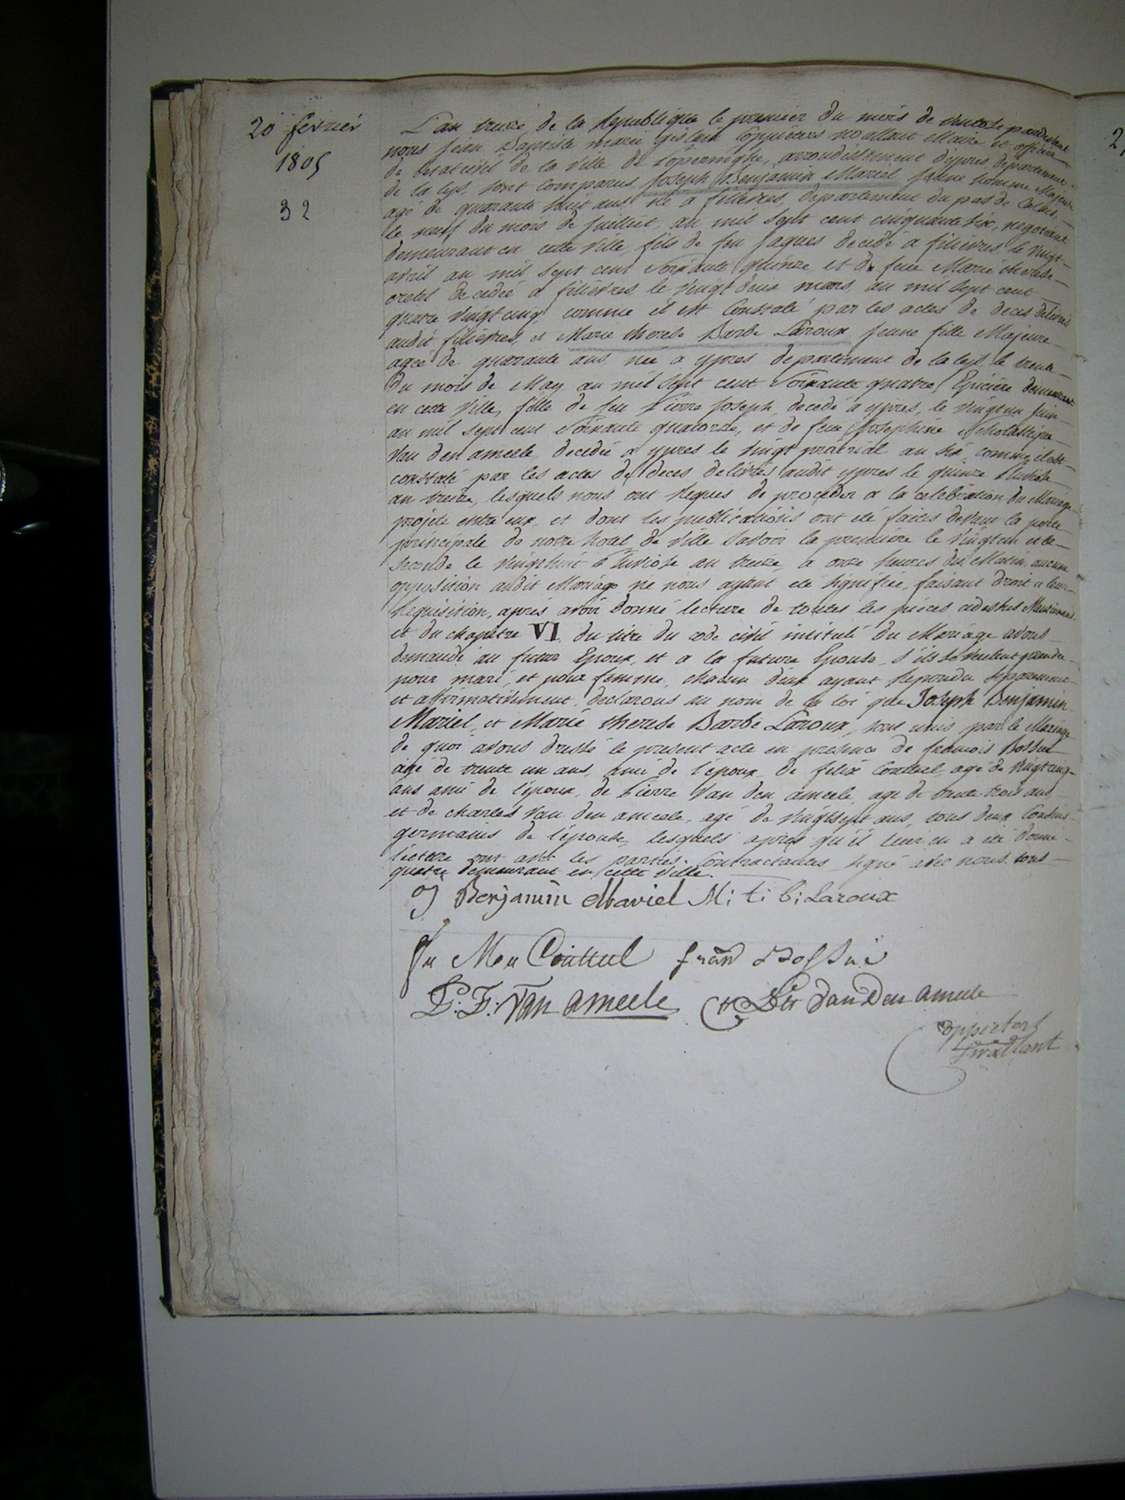 20 fevrier
1805
32
L'an treize de la Republique le premier du mois de ventose pardevant
nous Jean Baptiste marie Coppieters Wallant Maire et officier
de l'etat civil de la Ville de Poperinghe, arrondissement d'ypres departement
de la lys sont comparus Joseph Benjamin Mariel jeune homme Majeur
agé de quarante huit ans né a filievres, departement du pas de Calais,
le neuf du mois de Juillet an mil sept cent cinquante six, negociant
demeurant en cette ville, fils de feu Jaques decedé a filievres le vingt
avril an mil sept cent soixante quinze et de feue Marie therese
decedée a filievres le vingt deux mars an mil sept cent
quatre vingt cinq comme il est Constaté par les actes de deces delivrés
audit filievres, et Marie therese Barbe Laroux jeune fille Majeure
agée de quarante ans née a ypres departement de la lys le trente
du mois de May an mil sept cent soixante quatre, Epiciere demeurant
en cette Ville, fille de feu Pierre Joseph, decedé a ypres, le vingt un Juin
an mil sept cent soixante quatorze, et de feue Josephine Scholastique
Van den ameele decedée a ypres le vingt prairial an six, comme il est
constaté par les actes de deces delivrés audit ypres le quinze Pluviose
an treize, lesquels nous ont requis de proceder a la celebration du Mariage
projeté entre eux et dont les publications ont été faites devant la porte
principale de notre hotel de Ville savoir la premiere le vingt un et la
seconde le vingt huit Pluviose an treize, a onze heures du Matin, aucune
opposition audit Mariage ne nous ayant été signifiée, faisant droit a leur
requisition, apres avoir donné lecture de toutes les pieces cidessus Mentionnées
et du chapitre VI du titre du code civil intitulé du Mariage avons
demandé au futur Epoux et a la future Epouse s'ils se veulent prendre
pour mari et pour femme, chacun d'eux ayant repondu separement
et affirmativement, declarons au nom de la loi que Joseph Benjamin
Mariel et Marie therese Barbe Laroux, sont unis par le Mariage
de quoi avons dressé le present acte en presence de francois Bossu
agé de trente un ans, ami de l'epoux de felix Couttul agé de vingt cinq
ans ami de l'epoux, de Pierre Van den ameele agé de trente trois ans
et de charles Van den ameele, agé de vingt sept ans, tous deux Cousins
germains de l'epouse, lesquels apres qu'il leur en a été donné
lecture ont avec les parties Contractantes signé avec nous tous
quatre demeurant en cette Ville.
J Benjamin Mariel M: t: b: Laroux
Couttul fran Bossue
P: F: Van ameele Van Den Ameele
Coppieters
Wallant